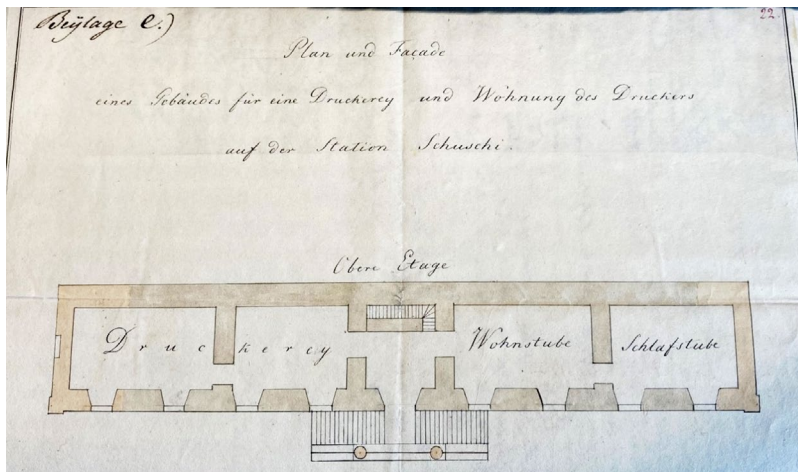 Beÿlage e.)
22.
Plan und Façade
eines Gebäudes für eine Druckerey und Wohnung des Druckers
auf der Station Schuschi.
Obere Etage
Druckerey
Wohnstube
Schlafstube